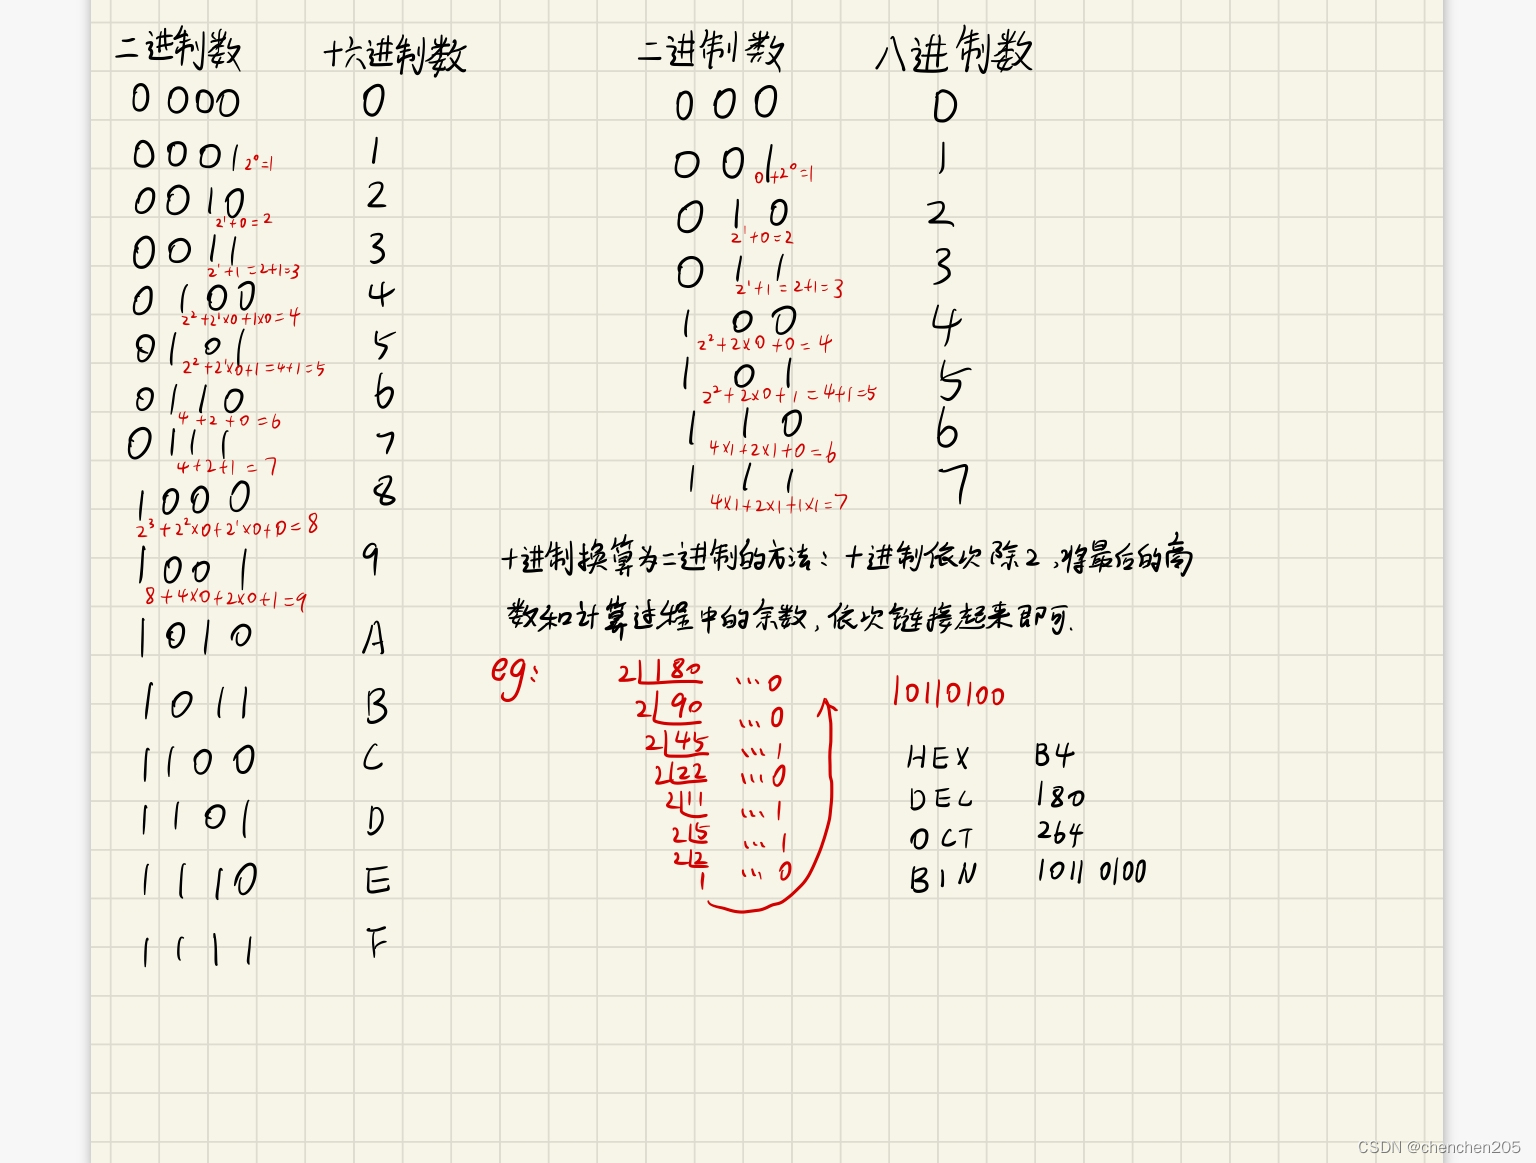 二进制数 十六进制数
0000 0
0001 1
2⁰=1
0010 2
2¹+0=2
0011 3
2¹+1=2+1=3
0100 4
2²+2¹×0+1×0=4
0101 5
2²+2¹×0+1=4+1=5
0110 6
4+2+0=6
0111 7
4+2+1=7
1000 8
2³+2²×0+2¹×0+0=8
1001 9
8+4×0+2×0+1=9
1010 A
1011 B
1100 C
1101 D
1110 E
1111 F
二进制数 八进制数
000 0
001 1
0+2⁰=1
010 2
2¹+0=2
011 3
2¹+1=2+1=3
100 4
2²+2×0+0=4
101 5
2²+2×0+1=4+1=5
110 6
4×1+2×1+0=6
111 7
4×1+2×1+1×1=7
十进制换算为二进制的方法：十进制依次除2，将最后的商
数和计算过程中的余数，依次链接起来即可.
eg:
2 180 …0
2 90 …0
2 45 …1
2 22 …0
2 11 …1
2 5 …1
2 2 …0
1
10110100
HEX B4
DEC 180
OCT 264
BIN 1011 0100
CSDN @chenchen205